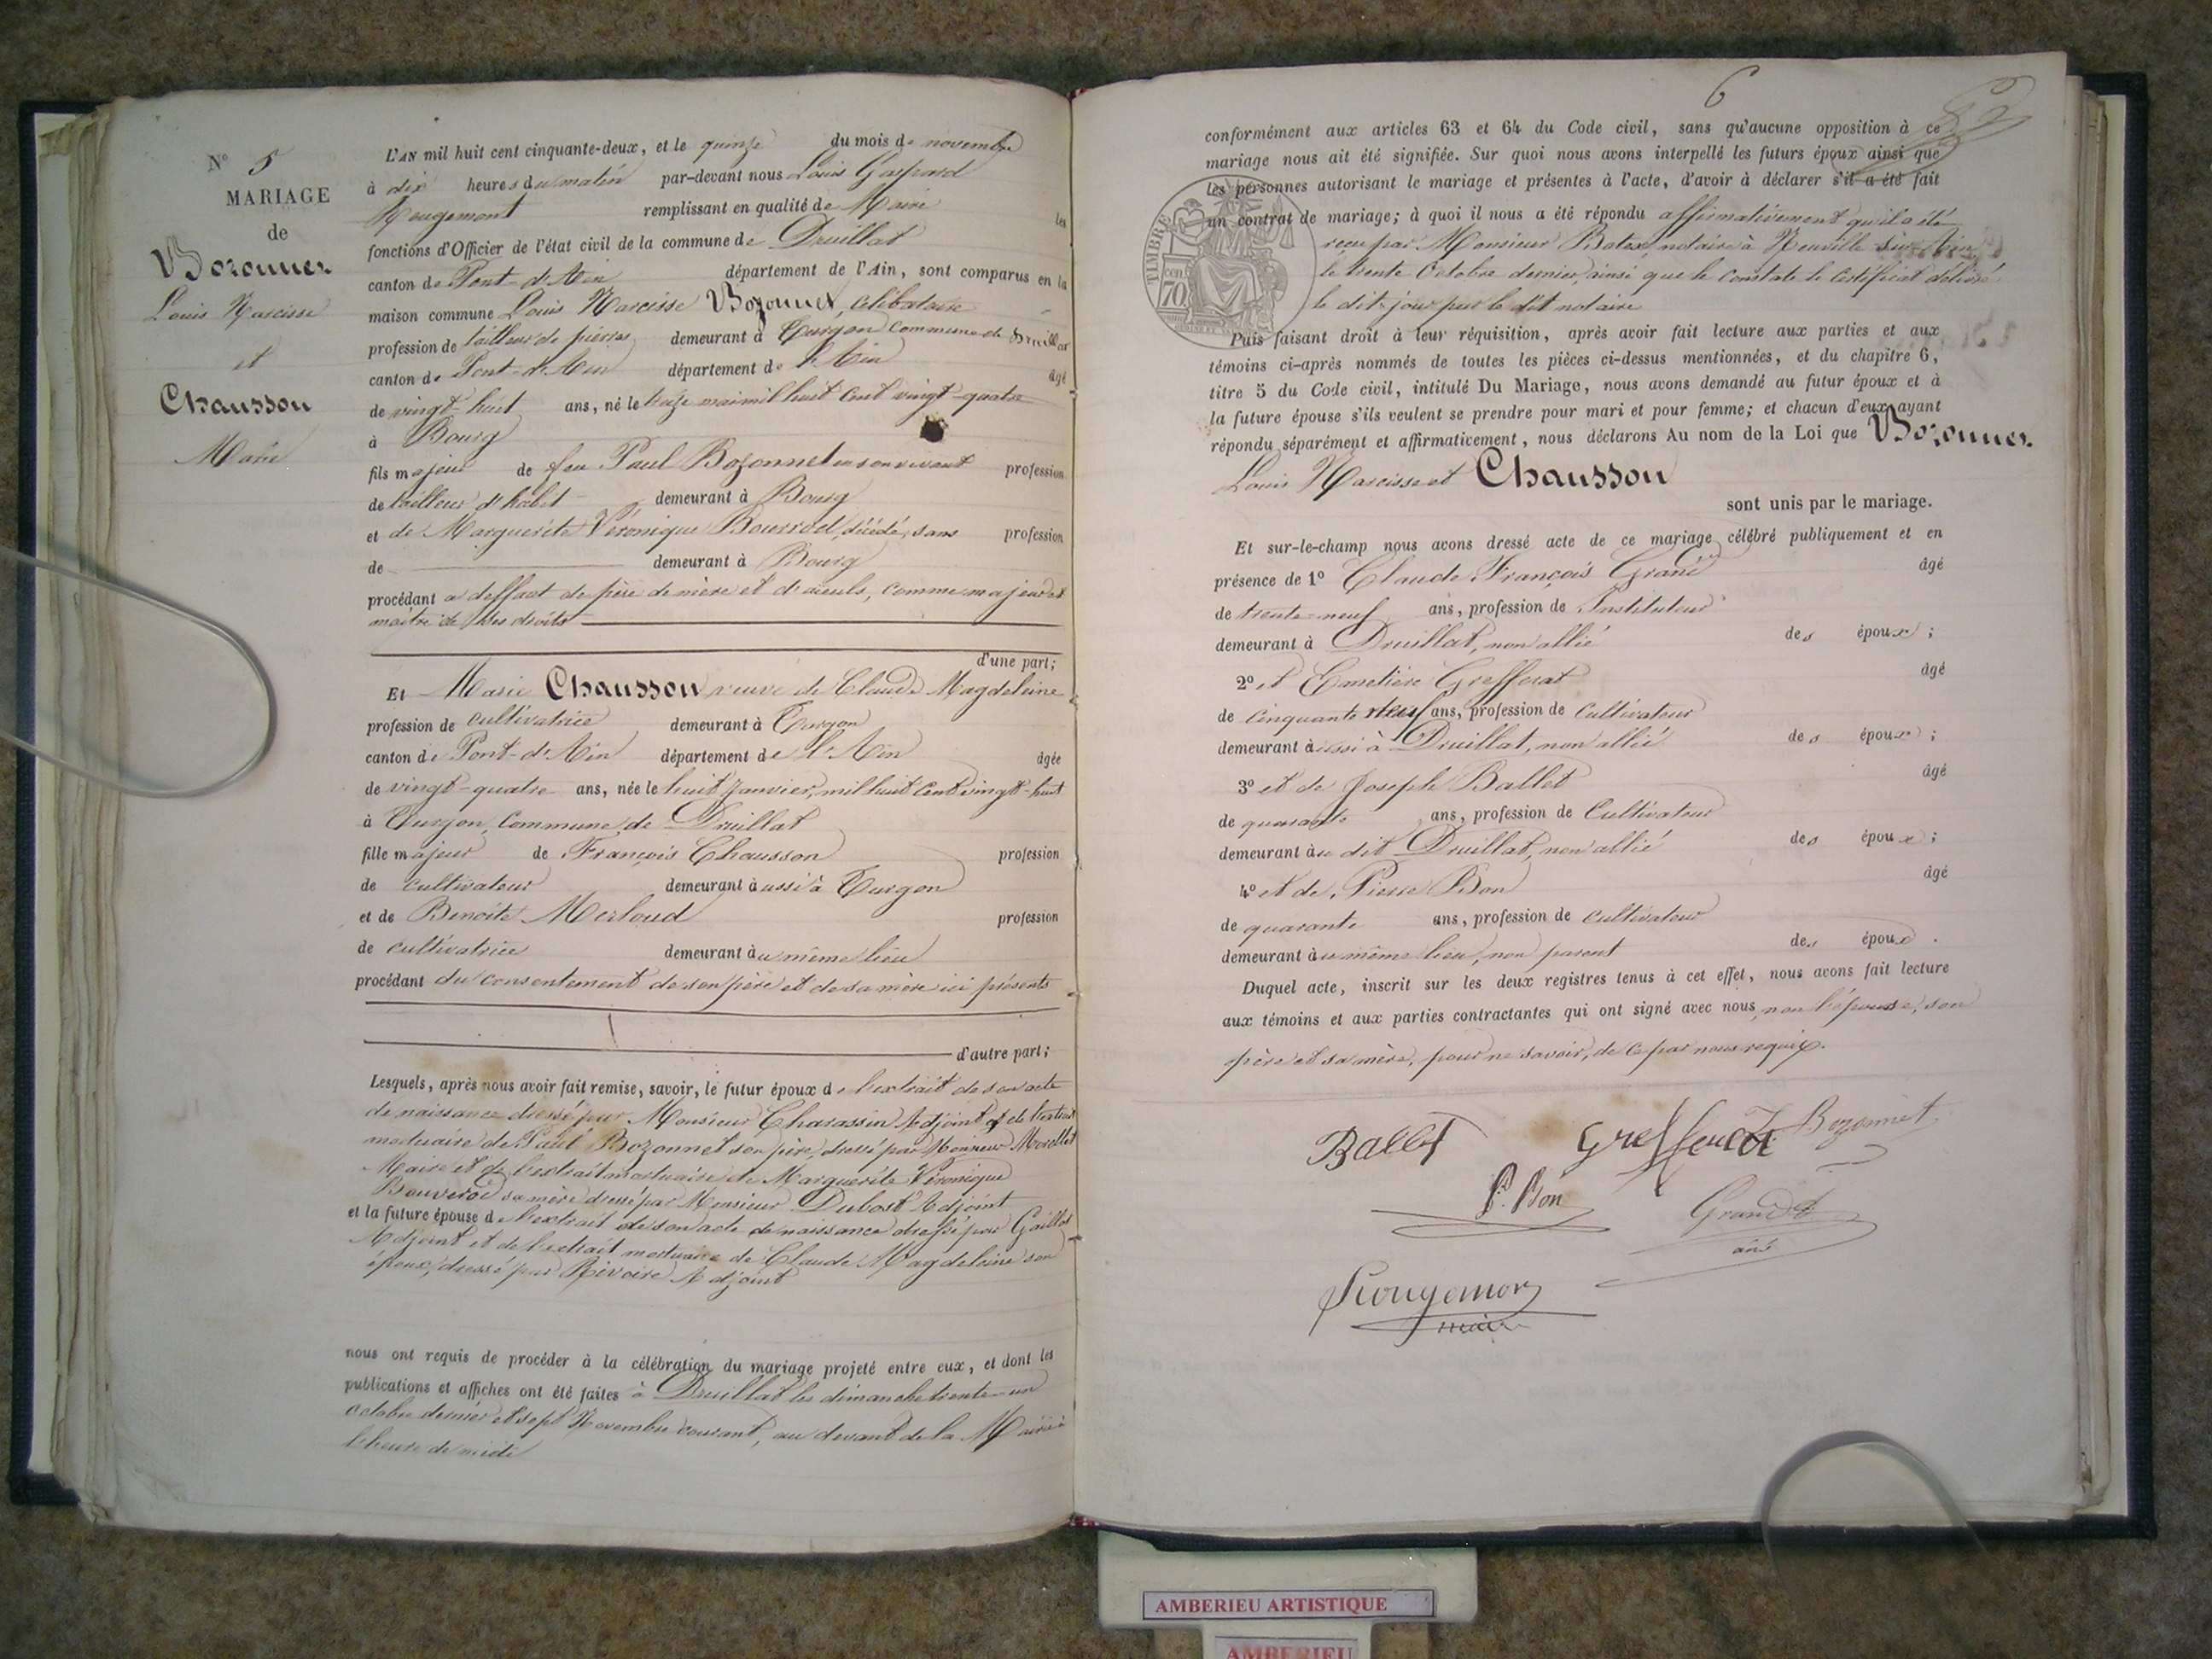 N° 5
MARIAGE
de
Bozonnet
Louis Narcisse
et
Chausson
Marie
L'AN mil huit cent cinquante-deux, et le quinze du mois de novembre
à dix heures du matin par-devant nous Louis Gaspard
Rougemont remplissant en qualité de Maire les
fonctions d'Officier de l'état civil de la commune de Druillat
canton de Pont-d'Ain département de l'Ain, sont comparus en la
maison commune Louis Narcisse Bozonnet, célibataire
profession de tailleur de pierres demeurant à Turgon Commune de Druillat
canton de Pont-d'Ain département de l'Ain âgé
de vingt-huit ans, né le treize mai mil huit cent vingt-quatre
à Bourg
fils majeur de feu Paul Bozonnet en son vivant profession
de tailleur d'habit demeurant à Bourg
et de Marguerite Véronique décédé, sans profession
de demeurant à Bourg
procédant a deffaut de père de mère et d'aieuls, comme majeur et
maitre de ses droits
d'une part;
Et Marie Chausson veuve de Claude Magdeleine
profession de cultivatrice demeurant à Turgon
canton de Pont-d'Ain département de l'Ain âgée
de vingt-quatre ans, née le huit Janvier, mil huit Cent vingt-huit
à Turgon, Commune de Druillat
fille majeur de François Chausson profession
de cultivateur demeurant à ussi à Turgon
et de Benoite Merloud profession
de cultivatrice demeurant à u même lieu
procédant du consentement de son père et de sa mère ici présents
d'autre part;
Lesquels, après nous avoir fait remise, savoir, le futur époux de l'extrait de son acte
de naissance dressé par Monsieur Charassin Adjoint & de l'extrait
mortuaire de Paul Bozonnet son père, dressé par Monsieur Morellet
Maire et de l'extrait mortuaire de Marguerite Véronique
sa mère dressé par Monsieur Dubost Adjoint
et la future épouse de l'extrait de son acte de naissance dressé par Gaillot
Adjoint et de l'extrait mortuaire de Claude Magdeleine son
époux, dressé par Rivoire Adjoint
nous ont requis de procéder à la célébration du mariage projeté entre eux, et dont les
publications et affiches ont été faites à Druillat les dimanche trente-un
octobre dernier et sept Novembre courant, au devant de la Mairie à
l'heure de midi
6
conformément aux articles 63 et 64 du Code civil, sans qu'aucune opposition à ce
mariage nous ait été signifiée. Sur quoi nous avons interpellé les futurs époux ainsi que
les personnes autorisant le mariage et présentes à l'acte, d'avoir à déclarer s'il a été fait
un contrat de mariage; à quoi il nous a été répondu affirmativement qu'il a été
reçu par Monsieur notaire à Neuville sur Ain,
le trente Octobre dernier, ainsi que le constate le Certificat délivré
le dit jour par le dit notaire
TIMBRE
70
Puis faisant droit à leur réquisition, après avoir fait lecture aux parties et aux
témoins ci-après nommés de toutes les pièces ci-dessus mentionnées, et du chapitre 6,
titre 5 du Code civil, intitulé Du Mariage, nous avons demandé au futur époux et à
la future épouse s'ils veulent se prendre pour mari et pour femme; et chacun d'eux ayant
répondu séparément et affirmativement, nous déclarons Au nom de la Loi que Bozonnet
Louis Narcisse et Chausson
sont unis par le mariage.
Et sur-le-champ nous avons dressé acte de ce mariage célébré publiquement et en
présence de 1° Claude François âgé
de trente-neuf ans, profession de Instituteur
demeurant à Druillat, non allié des époux;
2° et Grefferat âgé
de Cinquante neuf ans, profession de Cultivateur
demeurant à ussi à Druillat, non allié des époux;
3° et de Joseph Ballet âgé
de quarante ans, profession de Cultivateur
demeurant àu dit Druillat, non allié des époux;
4° et de Pierre Bon âgé
de quarante ans, profession de cultivateur
demeurant àu même lieu, non parent des époux.
Duquel acte, inscrit sur les deux registres tenus à cet effet, nous avons fait lecture
aux témoins et aux parties contractantes qui ont signé avec nous, non l'épouse, son
père et sa mère, pour ne savoir, de ce par nous requis.
Ballet Grefferat Bozonnet
P. Bon
Rougemont
maire
AMBERIEU ARTISTIQUE
AMBERIEU